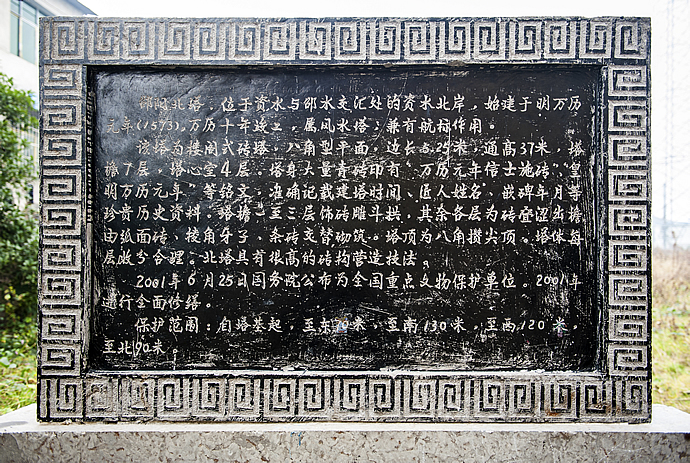 邵阳北塔，位于资水与邵水交汇处的资水北岸，始建于明万历
元年(1573)，万历十年竣工，属风水塔，兼有航标作用。
该塔为楼阁式砖塔，八角型平面，边长5.25米，通高37米，塔
檐7层，塔心室4层。塔身大量青砖印有"万历元年信士施砖""皇
明万历元年"等铭文，准确记载建塔时间、匠人姓名、嵌碑年月等
珍贵历史资料。塔檐一至三层饰砖雕斗拱，其余各层为砖叠涩出檐
由弧面砖、棱角牙子、条砖交替砌筑。塔顶为八角攒尖顶。塔体每
层收分合理。北塔具有很高的砖构营造技法。
2001年6月25日国务院公布为全国重点文物保护单位。2001年
进行全面修缮。
保护范围：自塔基起，至东70米，至南130米，至西120米，
至北90米。